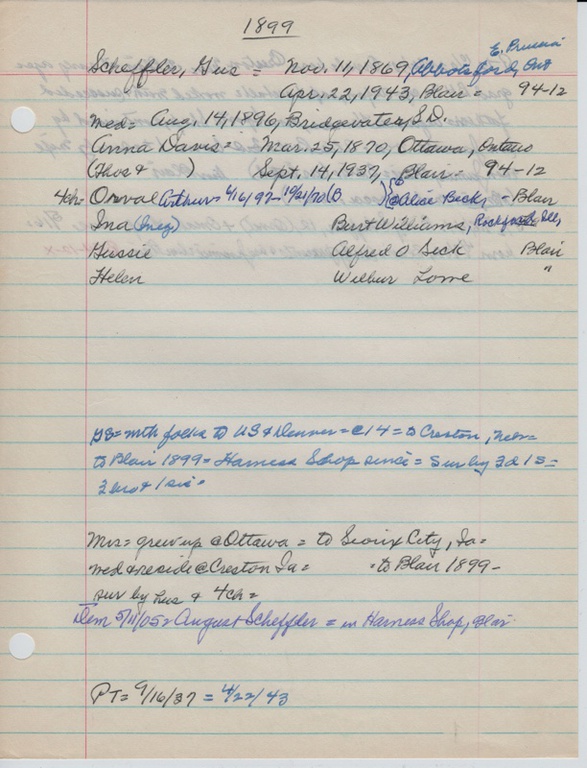 1899
E. Prussia
Scheffler, Gus = Nov. 11, 1869, Abbotsford, Ont
Apr. 22, 1943, Blair = 94-12
med= Aug. 14, 1896, Bridgewater, S.D.
Anna Davis = Mar. 25, 1870, Ottawa, Ontario
(Thos & ) Sept. 14, 1937, Blair - 94-12
4ch= Orval Arthur= 4/16/97- 10/21/70 (B @ Alice Beck, = Blair
Ina (Inez) Burt Williams, Rockford Ill,
Gussie Alfred O Sick Blair
Helen Wilbur Lowe "
GS= with folks to US & Denver = @ 14 = to Creston, Nebr=
to Blair 1899= Harness Shop since = sur by 3d 1s=
2 bro & 1 sis=
Mrs= grew up @ Ottawa = to Sioux City, Ia=
med & reside @ Creston Ia= = to Blair 1899-
sur by hus & 4ch=
Dem 5/11/05= August Scheffler = in Harness Shop, Blair
PT= 9/16/37 = 4/22/43